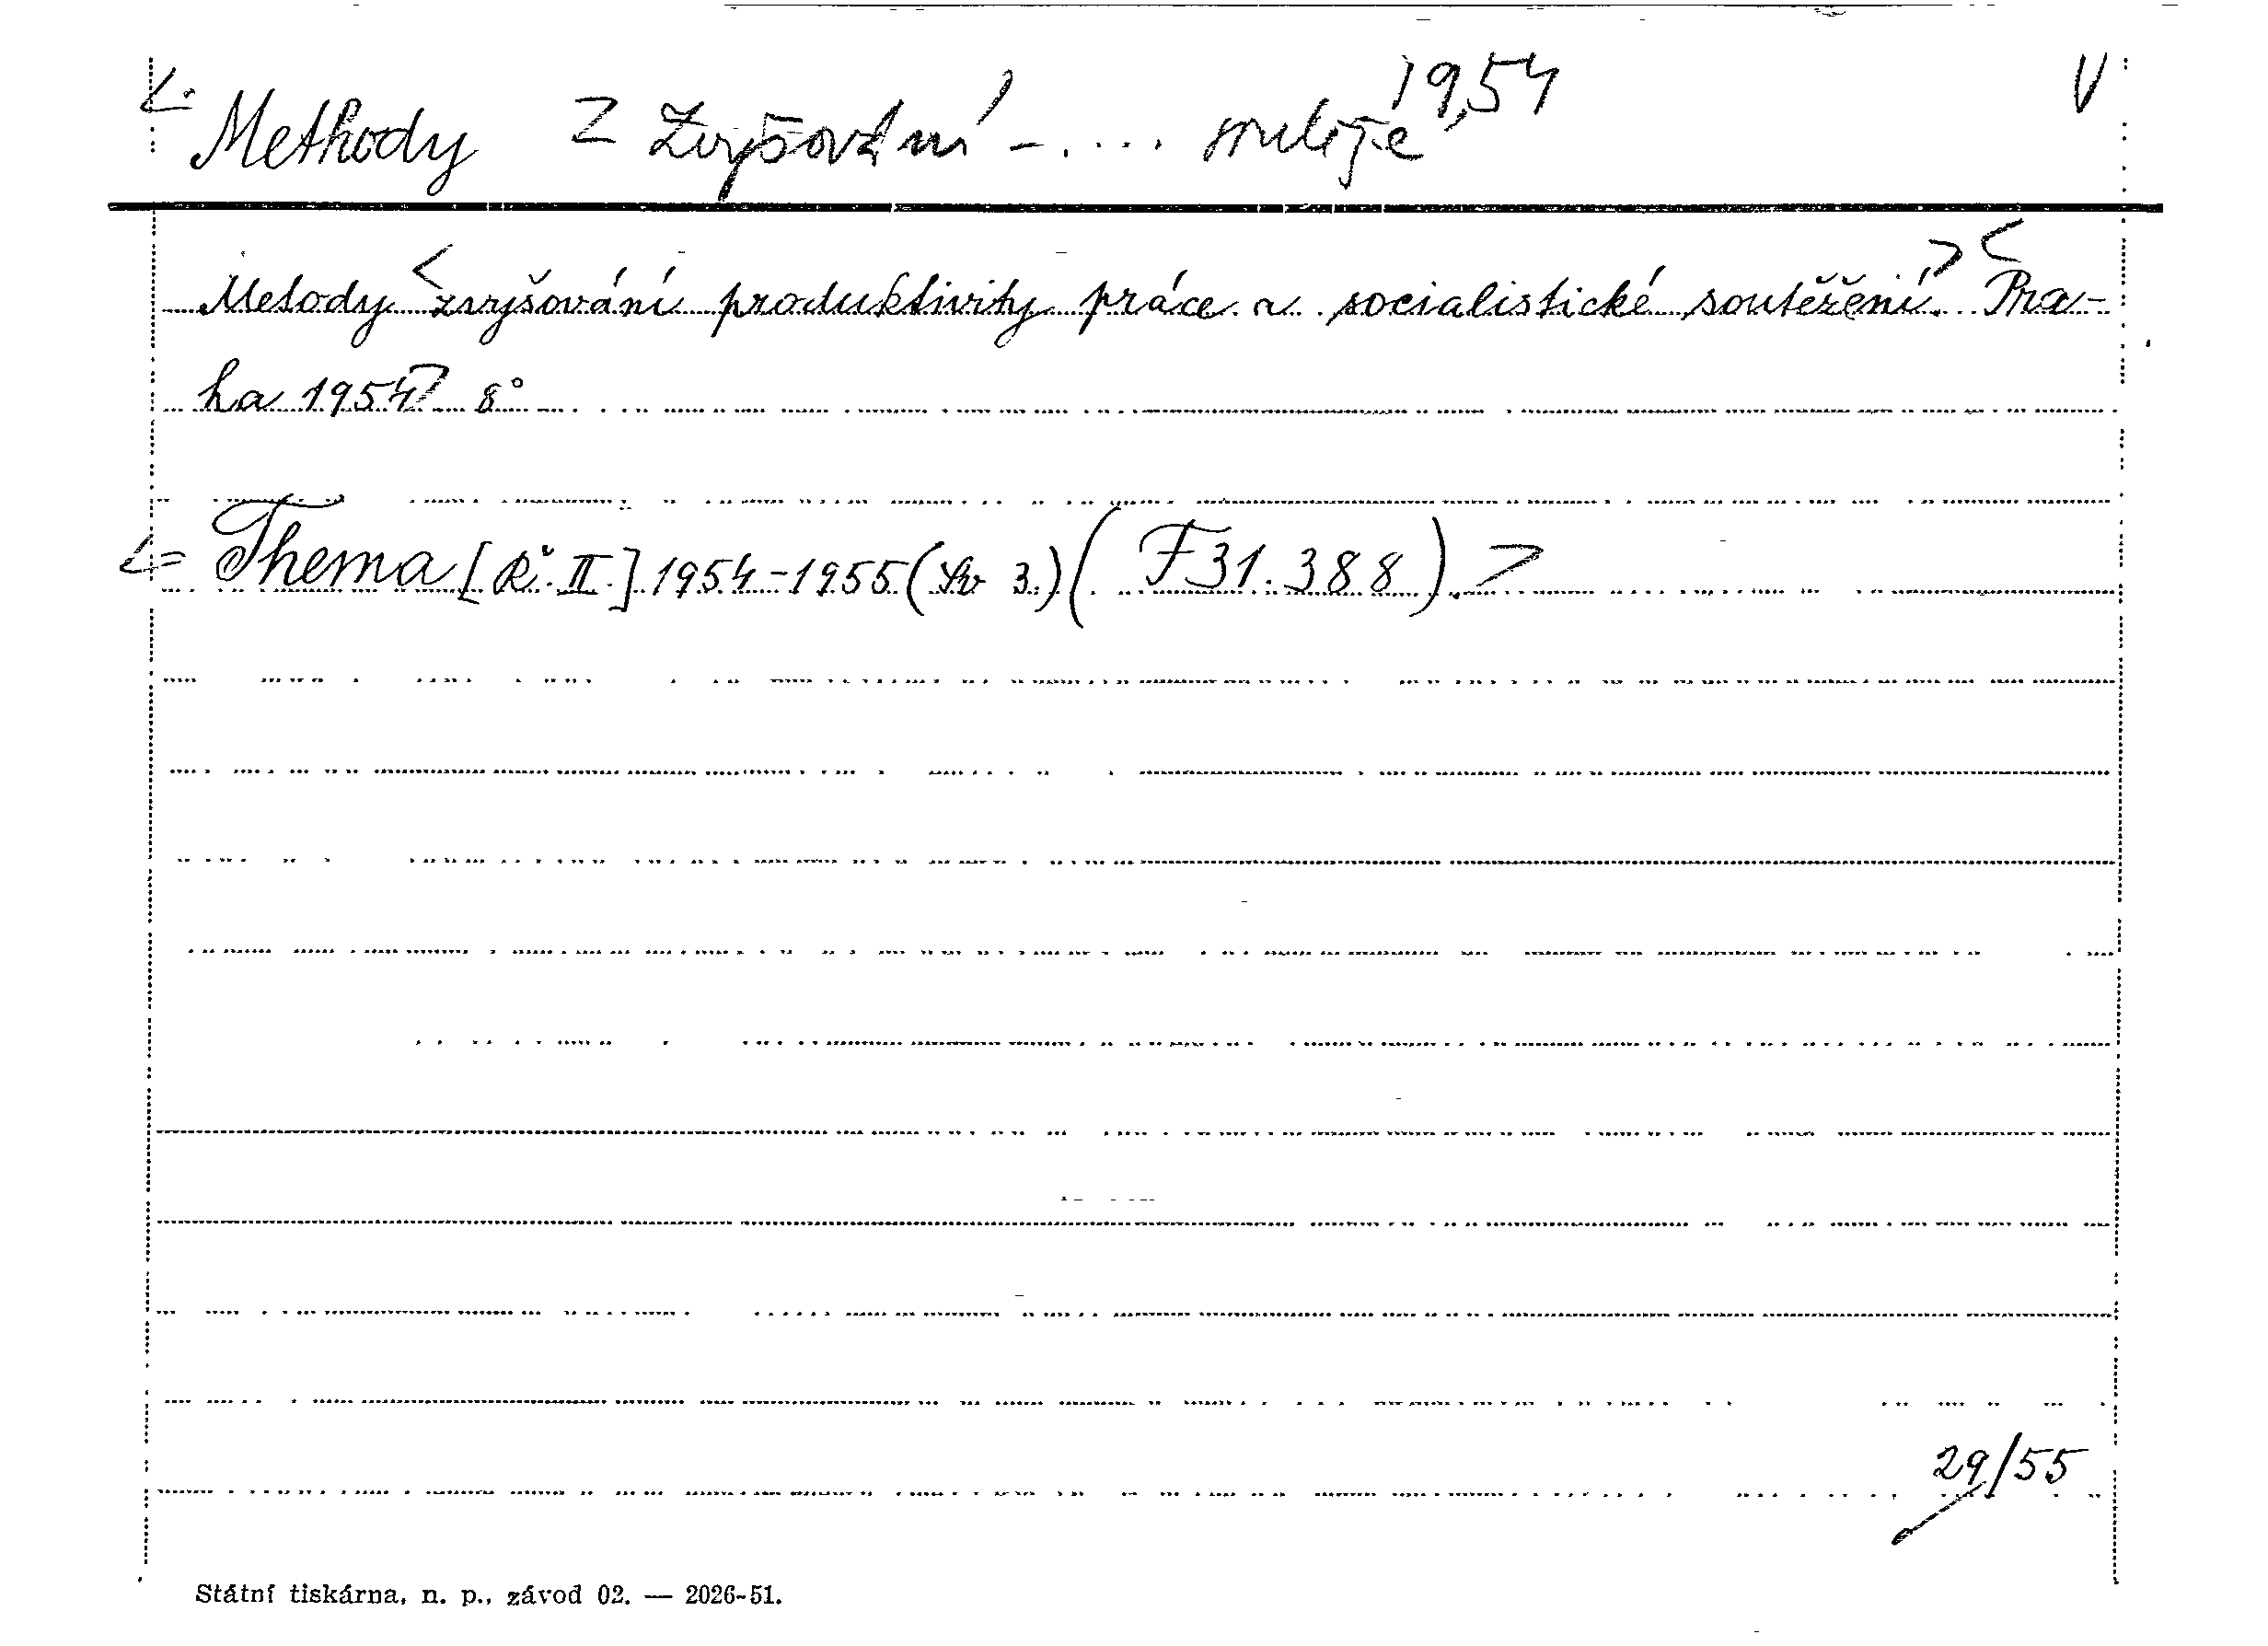 Methody Z Zvyšování - .... 1954 V
Metody <zvyšování produktivity práce a socialistické soutěžení.> <Pra-
ha 1954> 8°
<= Thema [Ř. II.] 1954-1955 (Sv 3.) (F 31.388).>
29/55
Státní tiskárna, n. p., závod 02. — 2026-51.